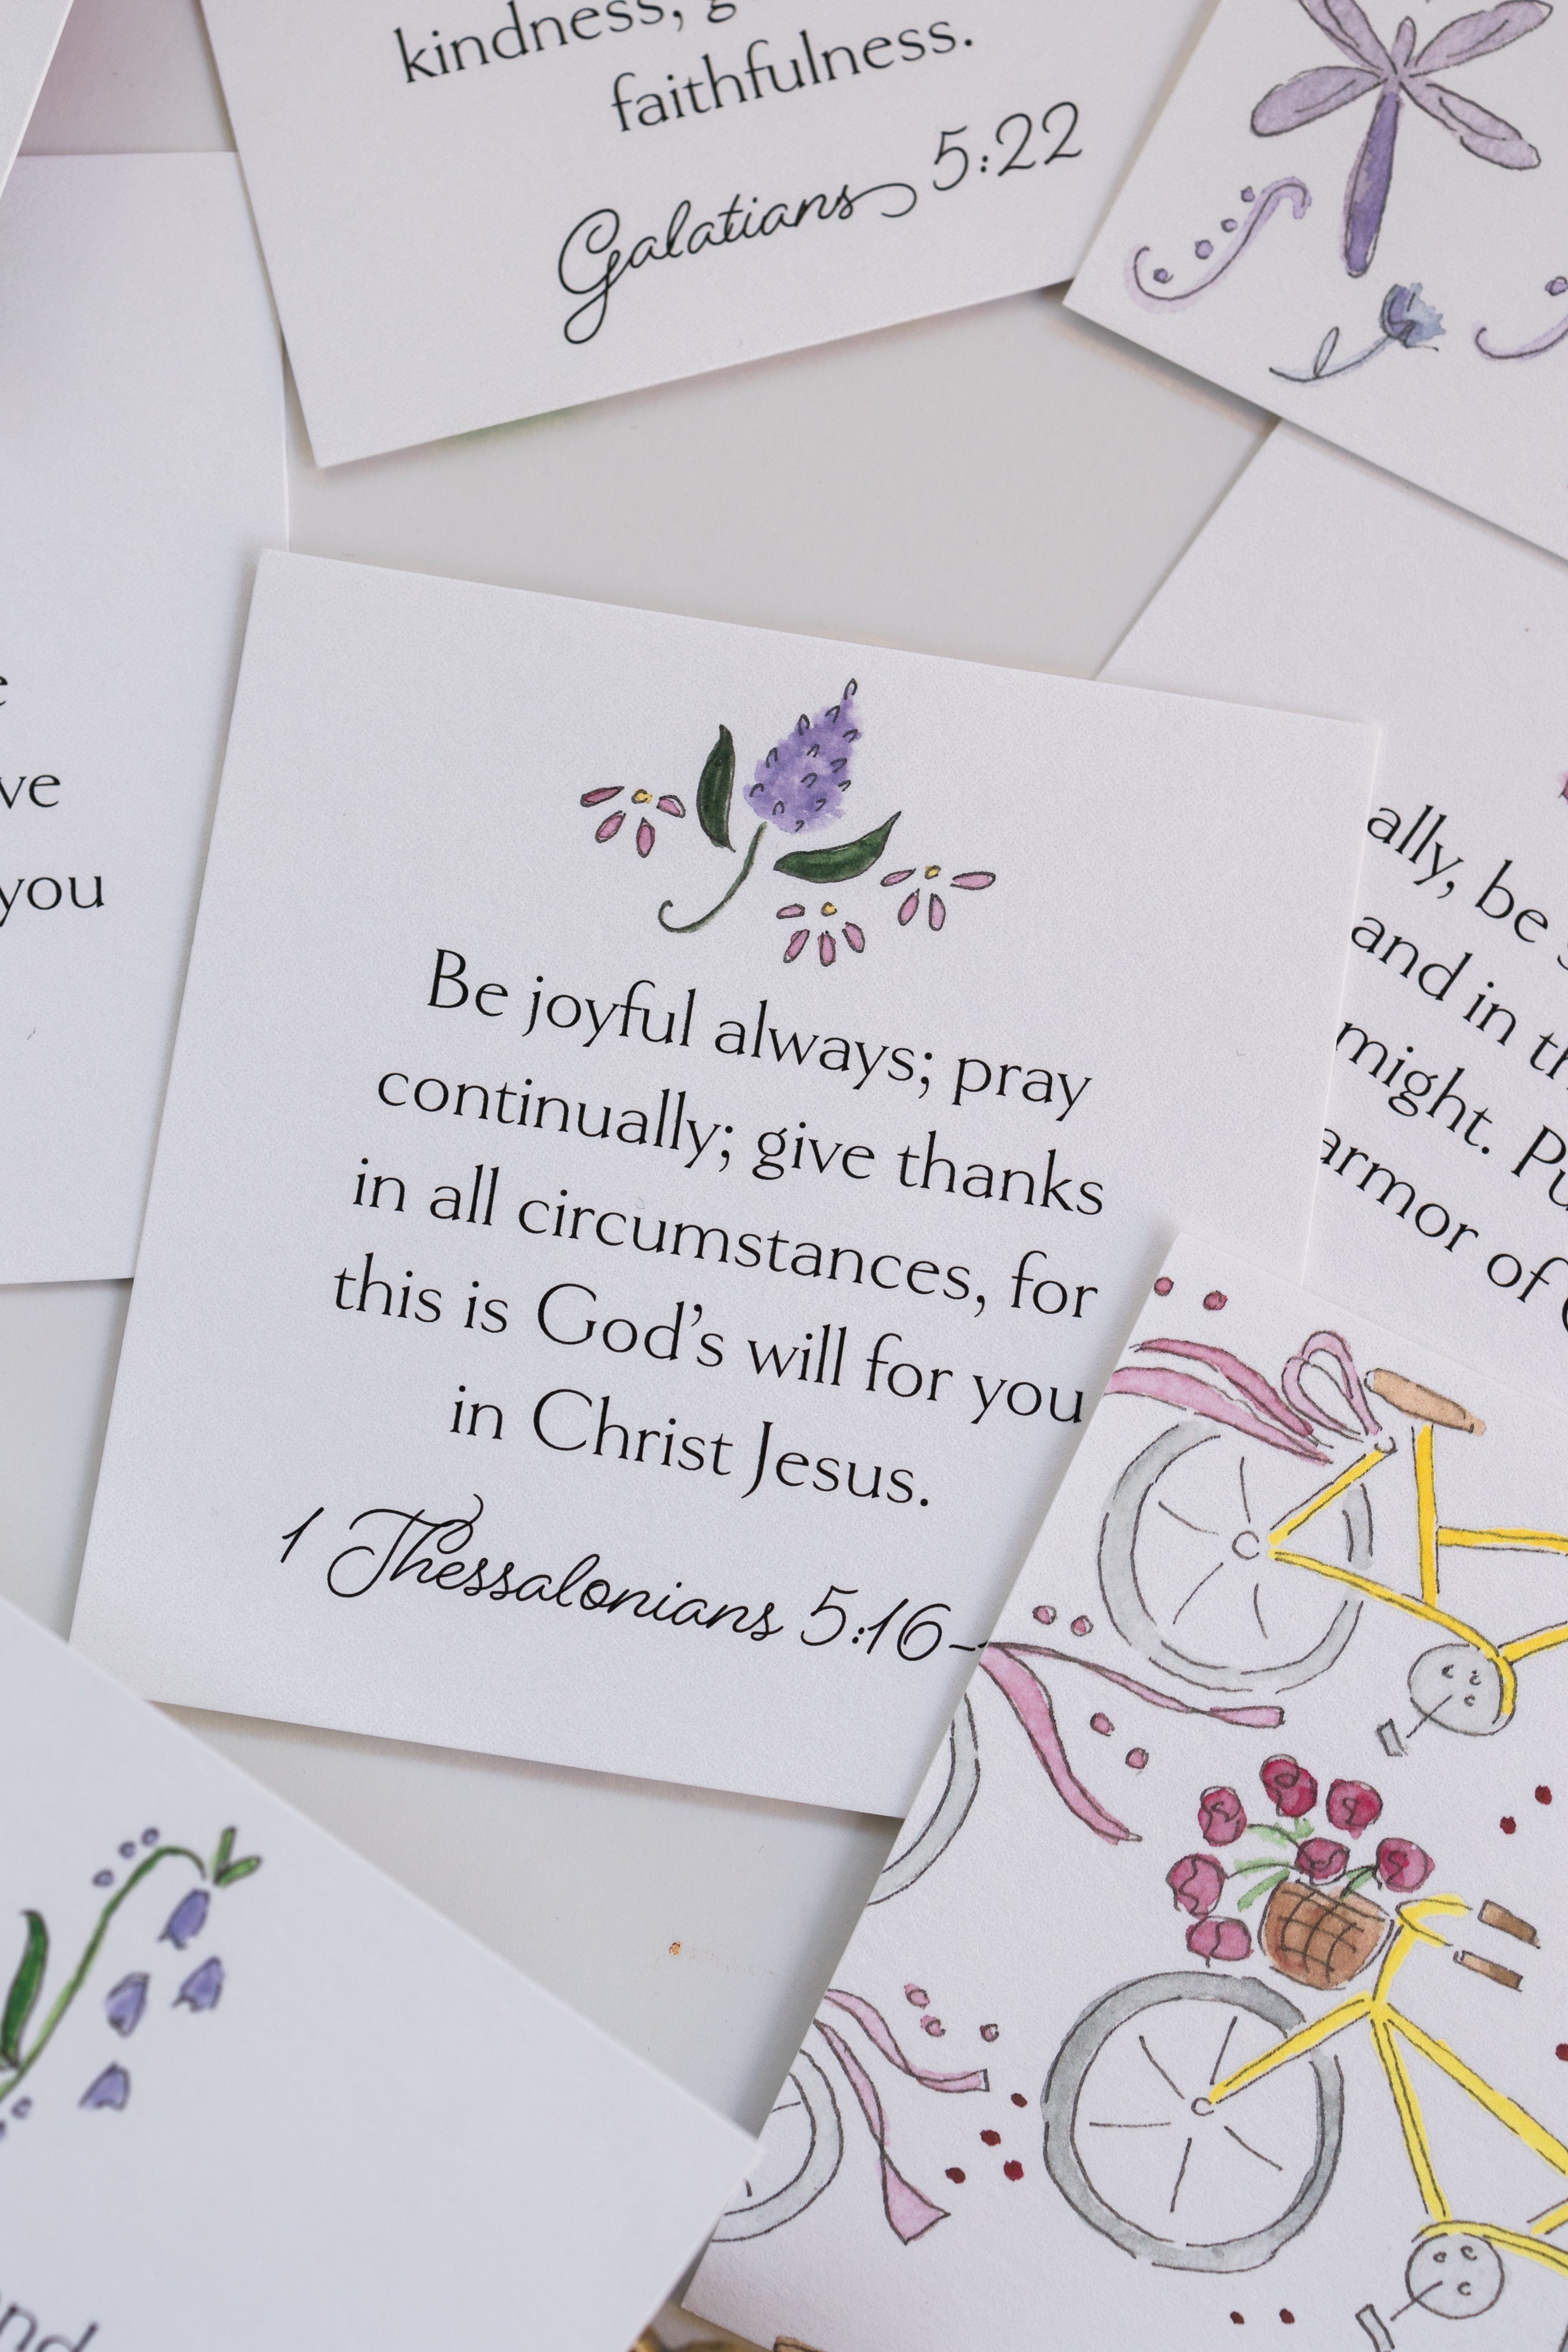 kindness,
faithfulness.
Galatians 5:22
ve
you
Be joyful always; pray
continually; give thanks
in all circumstances, for
this is God's will for you
in Christ Jesus.
1 Thessalonians 5:16-
ally, be
and in th
might. Pu
armor of